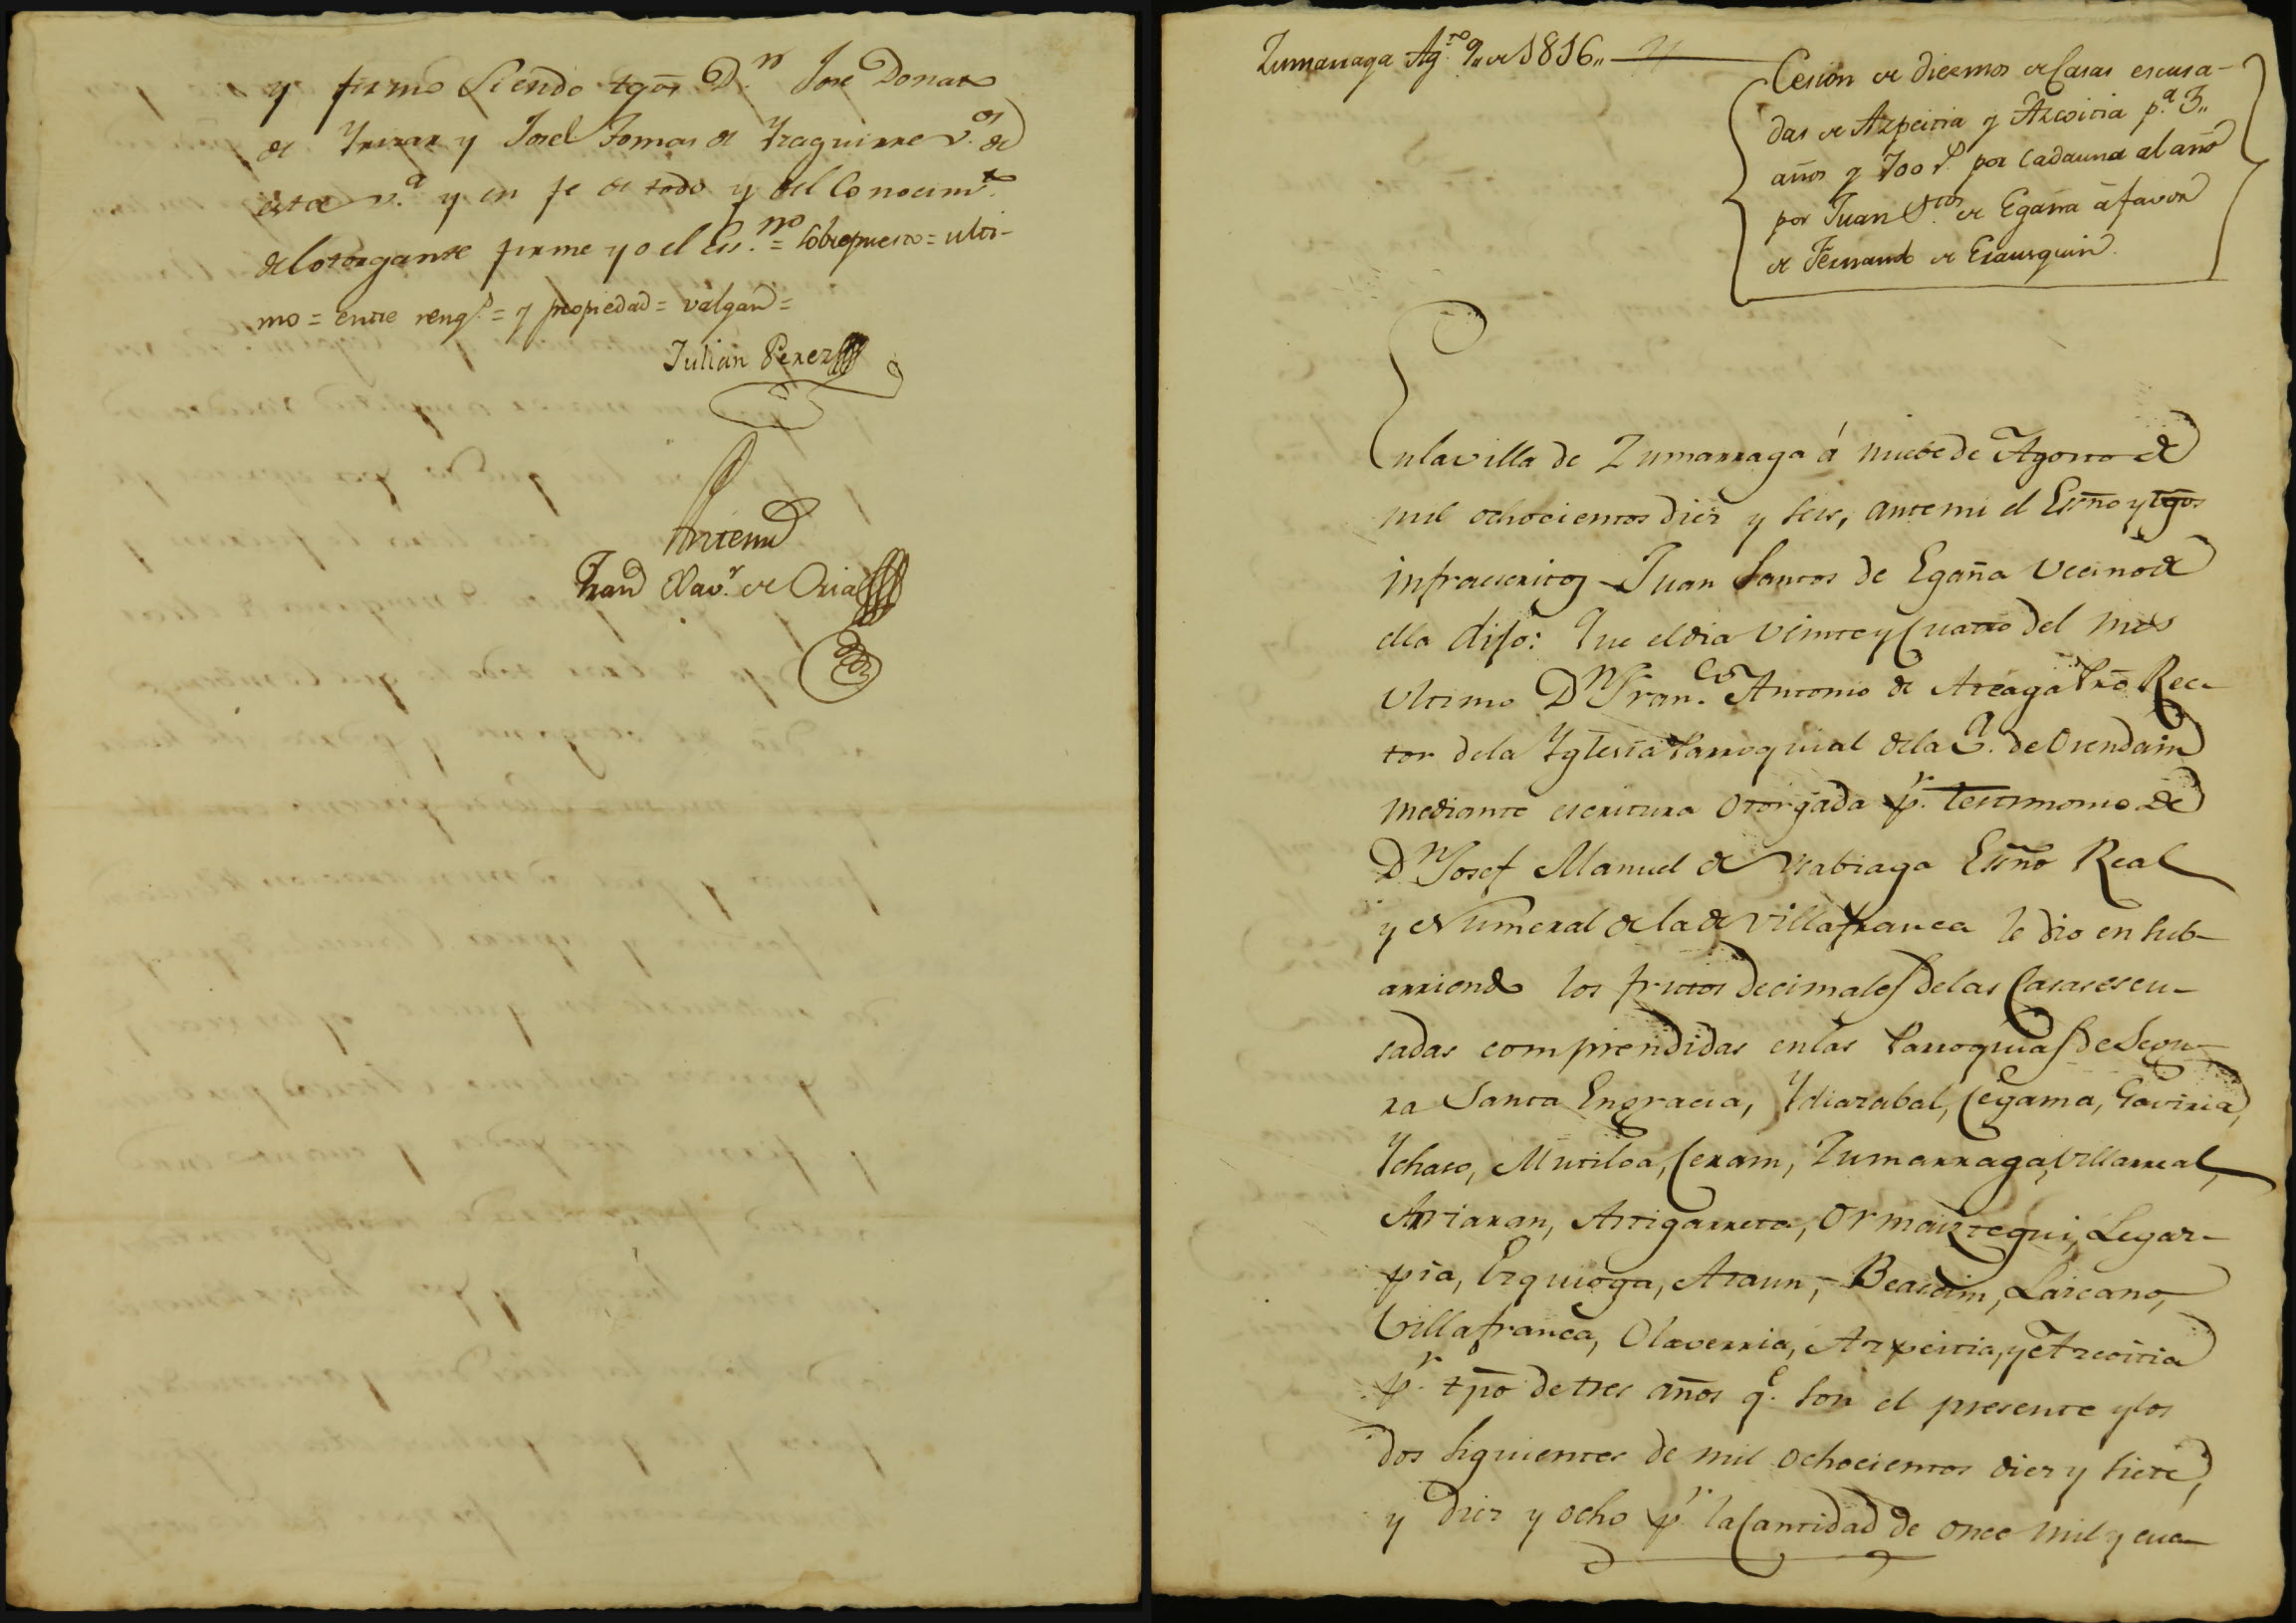 y firmo siendo tgos̄ D.n Jose Donato
de Yrizar y Josef Tomas de Yzaguirre v.os de
esta v.a y en fe de todo y del Conocim.to
del otorgante firme yo el Ess.no = sobrepuesto = ulti-
mo = entre reng.s = y propiedad = valgan =
Julian Perez
Antemi
Fran.co Xav.r de Oria
Zumarraga Ag.to 9,, de 1816,,
Cesion de diezmos de Casas escusa-
das de Azpeitia y Azcoitia p.a 3,,
años y 700 r.s por cadauna al año
por Juan S.tos de Egaña á favor
de Fernando de Erausquin.
Enlavilla de Zumarraga á nuebe de Agosto de
mil ochocientos diez y seis, antemi el Esno̅ y tgos̄
infraescritos Juan Santos de Egaña vecino de
ella dijo: Que eldia veinte y Cuatro del mes
ultimo D.n Fran.co Antonio de Areaga Pro̅ Rec-
tor dela Yglesia Parroquial dela V.a de Orendain
mediante escritura otorgada p.r testimonio de
D.n Josef Manuel de Usabiaga Esno̅ Real
y Numeral de la de Villafranca le dio en sub-
arriendo los frutos decimales delas Casas escu-
sadas comprendidas enlas Parroquias de Segu-
ra Santa Engracia, Ydiazabal, Cegama, Gaviria,
Ychaso, Mutiloa, Cerain, Zumarraga, Villarreal,
Arriaran, Astigarreta, Ormaiztegui, Legaz-
pia, Ezquioga, Ataun, Beasain, Lazcano,
Villafranca, Olaverria, Azpeitia, y Azcoitia
p.r tpo̅ de tres años q.e son el presente y los
dos siguientes de mil ochocientos diez y siete,
y diez y ocho p.r la Cantidad de once mil y cua-